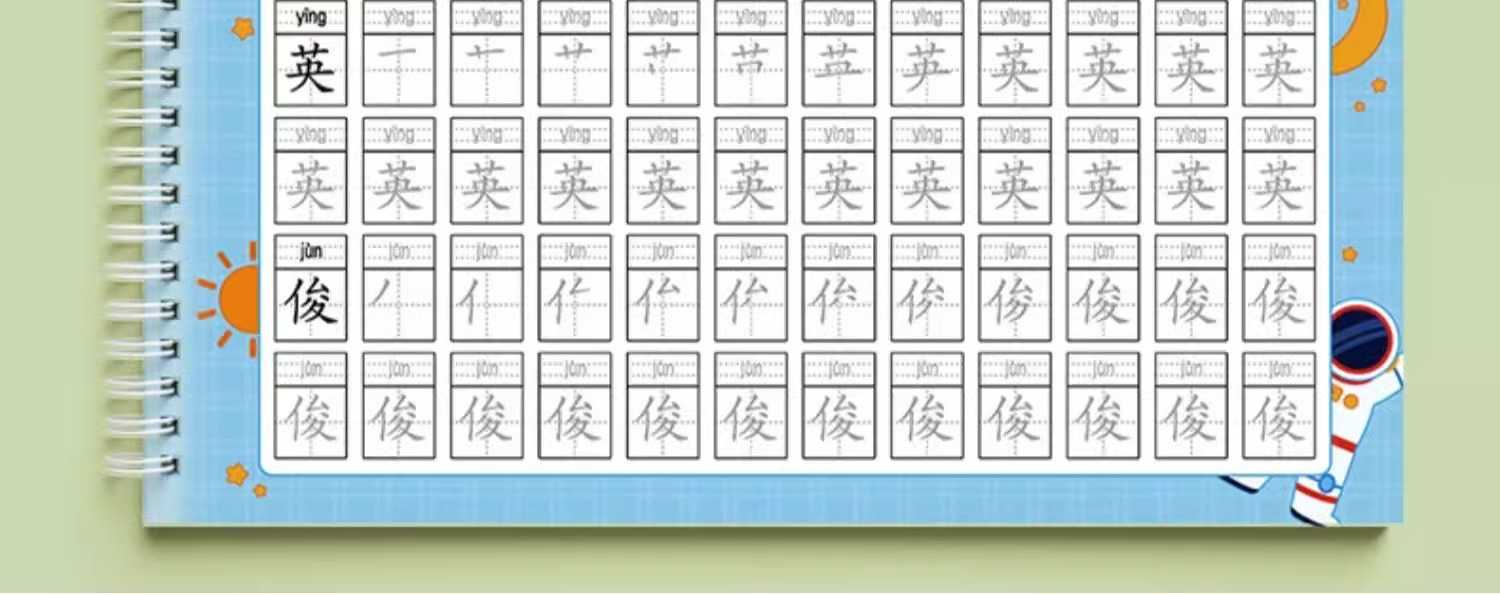 yīng yīng yīng yīng yīng yīng yīng yīng yīng yīng yīng yīng
英 英 英 英 英
yīng yīng yīng yīng yīng yīng yīng yīng yīng yīng yīng yīng
英 英 英 英 英 英 英 英 英 英 英 英
jùn jùn jùn jùn jùn jùn jùn jùn jùn jùn jùn jùn
俊 俊 俊 俊
jùn jùn jùn jùn jùn jùn jùn jùn jùn jùn jùn jùn
俊 俊 俊 俊 俊 俊 俊 俊 俊 俊 俊 俊